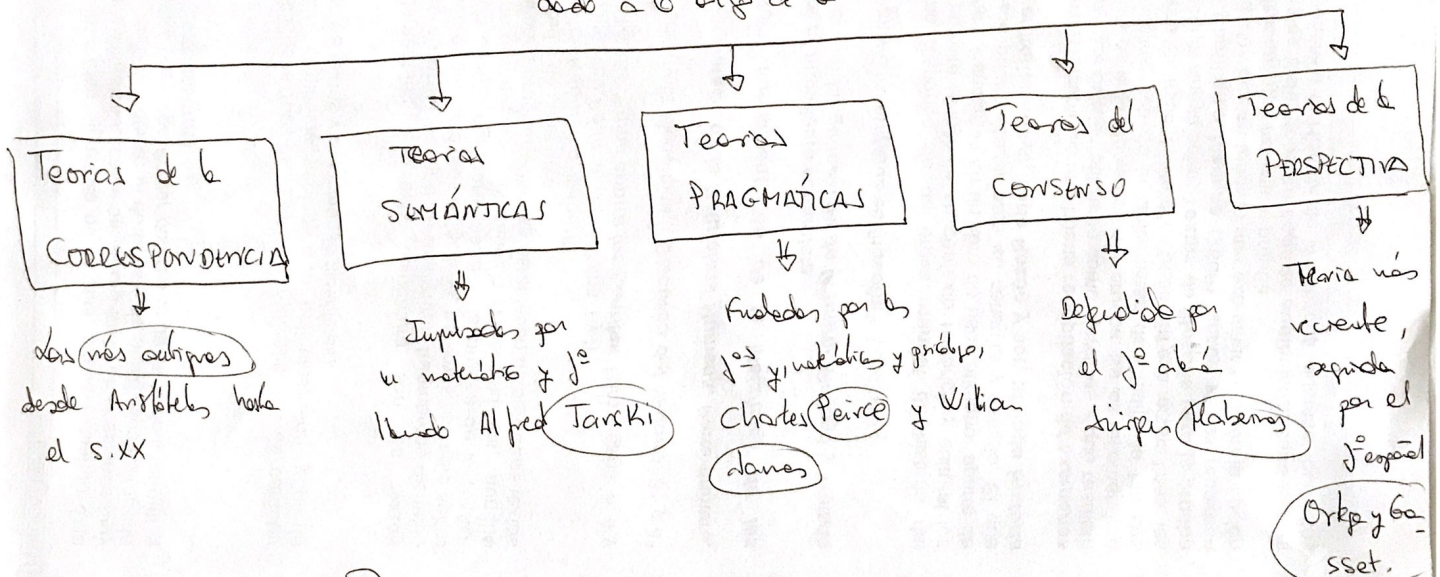 dado a lo
Teorías de la
CORRESPONDENCIA
Las más antiguas
desde Aristóteles hasta
el s.XX
Teorías
SEMÁNTICAS
Impulsadas por
un matemático y fº
llamado Alfred Tarski
Teorías
PRAGMÁTICAS
Fundadas por los
fºs y, matemáticos y psicólogo,
Charles Peirce y Wilian
James
Teorías del
CONSENSO
Defendida por
el fº alemán
Jürgen Habermas
Teorías de la
PERSPECTIVA
Teoría más
reciente,
seguida
por el
fº español
Ortega y Ga-
sset.